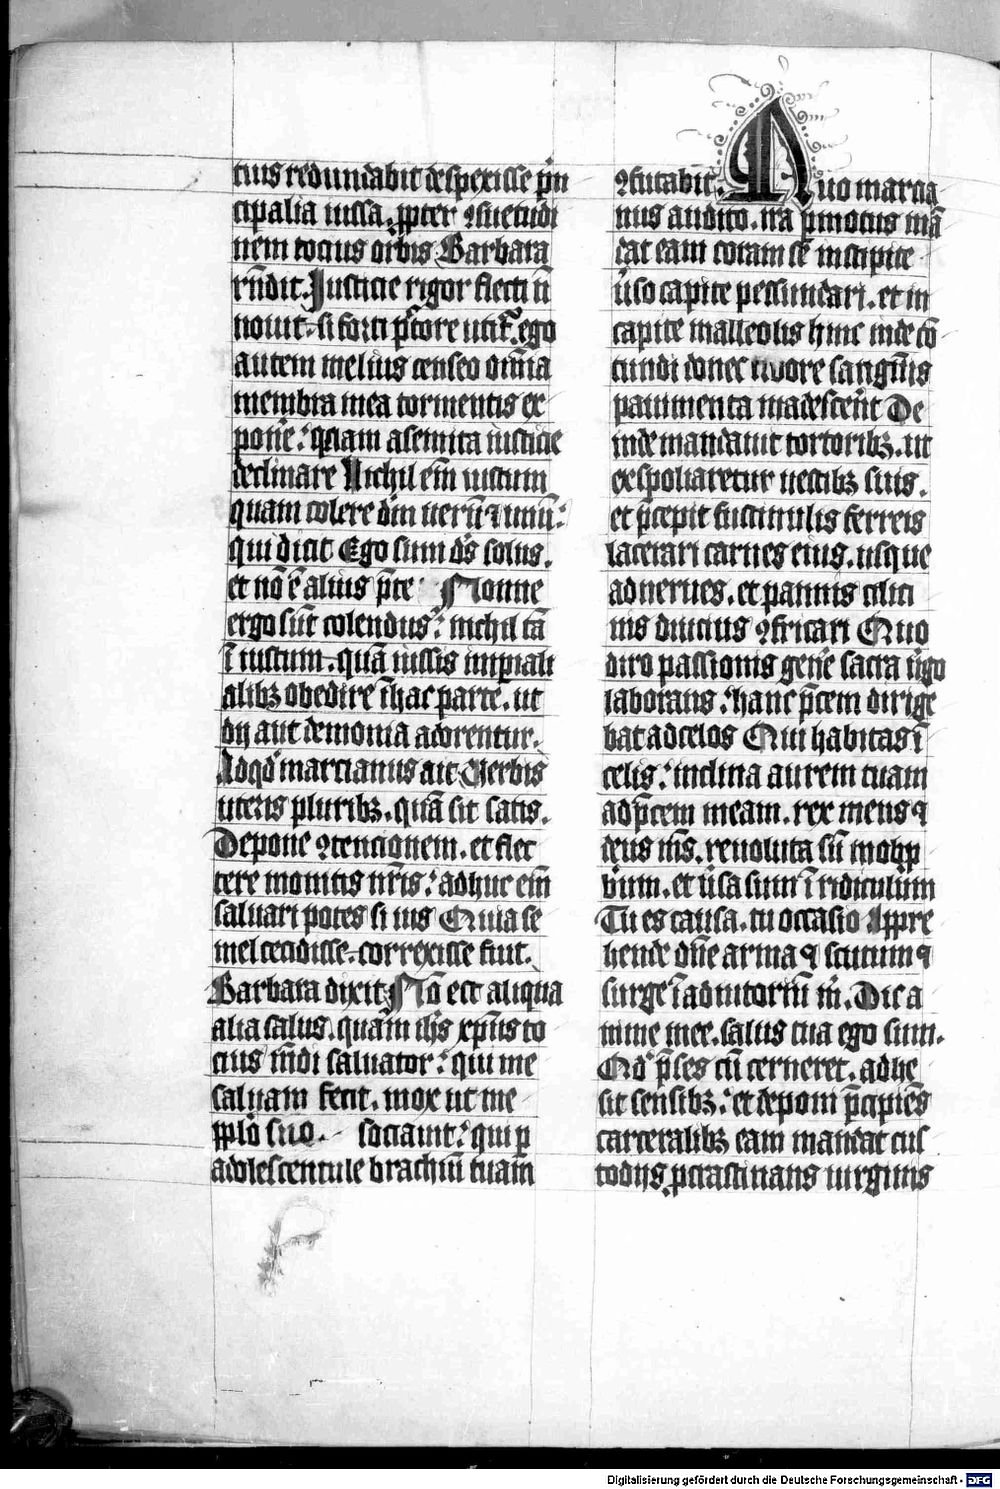 tius redundabit despexisse pͥn
cipalia iussa. ꝓpter ꝯsuetudi
nem tocius orbis Barbara
rn̄dit. Justicie rigor flecti n̄
nouit. si forti pc̄tore utit᷑. ego
autem melius censeo om̄ia
membra mea tormentis ex
pone᷑. quam asemita iusticie
declinare Nichil em̄ iustum
quam colere dm̄ uerū ⁊ unū.
qui dicit Ego sum ds̄ solus.
et nō ē alius p̄te᷑ Nonne
ergo sūt colendus. nichil tā
ī iustum. quā iussis imꝑiali
alibꝫ obedire ī hac parte. ut
dij aut demonia adorentur.
Adqd̄ marcianus ait Uerbis
uteris pluribꝫ. quā sit satis.
Depone ꝯtencionem. et flec
tere monitis nr̄is. adhuc em̄
saluari potes si uis Quia se
mel cecidisse. correxisse fiut.
Barbara dixit Nō est aliqua
alia salus. quam ih̄s xp̄us to
cius mūdi saluator. qui me
saluam fecit. mox ut me
pplō suo. sociauit. qui ꝑ
adolescentule brachiū tuam
ꝯfutabit. Quo marcia
nus audito. ira ꝑmotus mā
dat eam coram se in stipite
u᷑so capite pessundari. et in
capite malleolis hinc inde cō
tundi donec riuore sangīnis
pauimenta madescer̄nt De
inde mandauit tortoribꝫ. ut
exspoliaretur uestibꝫ suis.
et p̄cepit fuscinulis ferreis
lacerari carnes eius. usque
ad nerues. et pannis cilici
nis diucius ꝯfricari Quo
diro passionis gene᷑ sacra uͥgo
laborans. hanc p̄cem dirige
bat ad celos Qui habitas ī
celis. inclina aurem tuam
ad p̄cem meam. rex meus ⁊
deus ms̄. reuoluta sū in obꝓ
bͥum. et u᷑sa sum ī ridiculum
Tu es causa. tu occasio Appre
hende dn̄e arma ⁊ scutum ⁊
surge ī adiutoriū m̄. Dic a
nime mee. salus tua ego sum.
Qd̄ p̄ses cū cerneret. adhe
sit sensibꝫ. et deponi p̄cipiēs
carceralibꝫ eam mandat cus
todijs. ꝓcrastinans uirginis
Digitalisierung gefördert durch die Deutsche Forschungsgemeinschaft - DFG